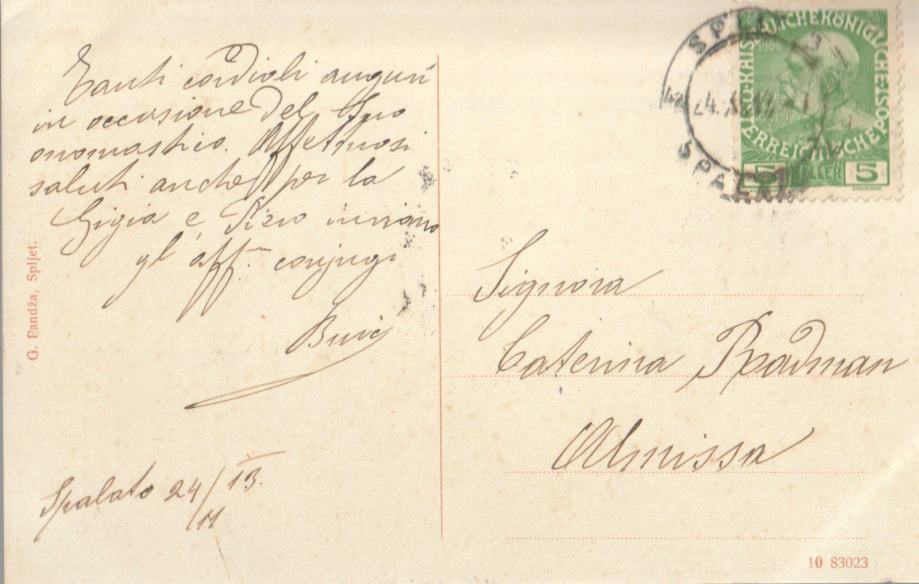 Tanti cordiali auguri
in occasione del Suo
onomastico. Affettuosi
saluti anche per la
Gigia e inviano
gl'aff.mi conjugi
Spalato 24/11 13.
G. Pandža, Spljet.
SPLJET
24.X
SPALATO
KAISERLICHE KÖNIGLICHE
1908
ÖSTERREICHISCHE POST
5 HELLER 5
Signora
Caterina Radman
Almissa
10 83023